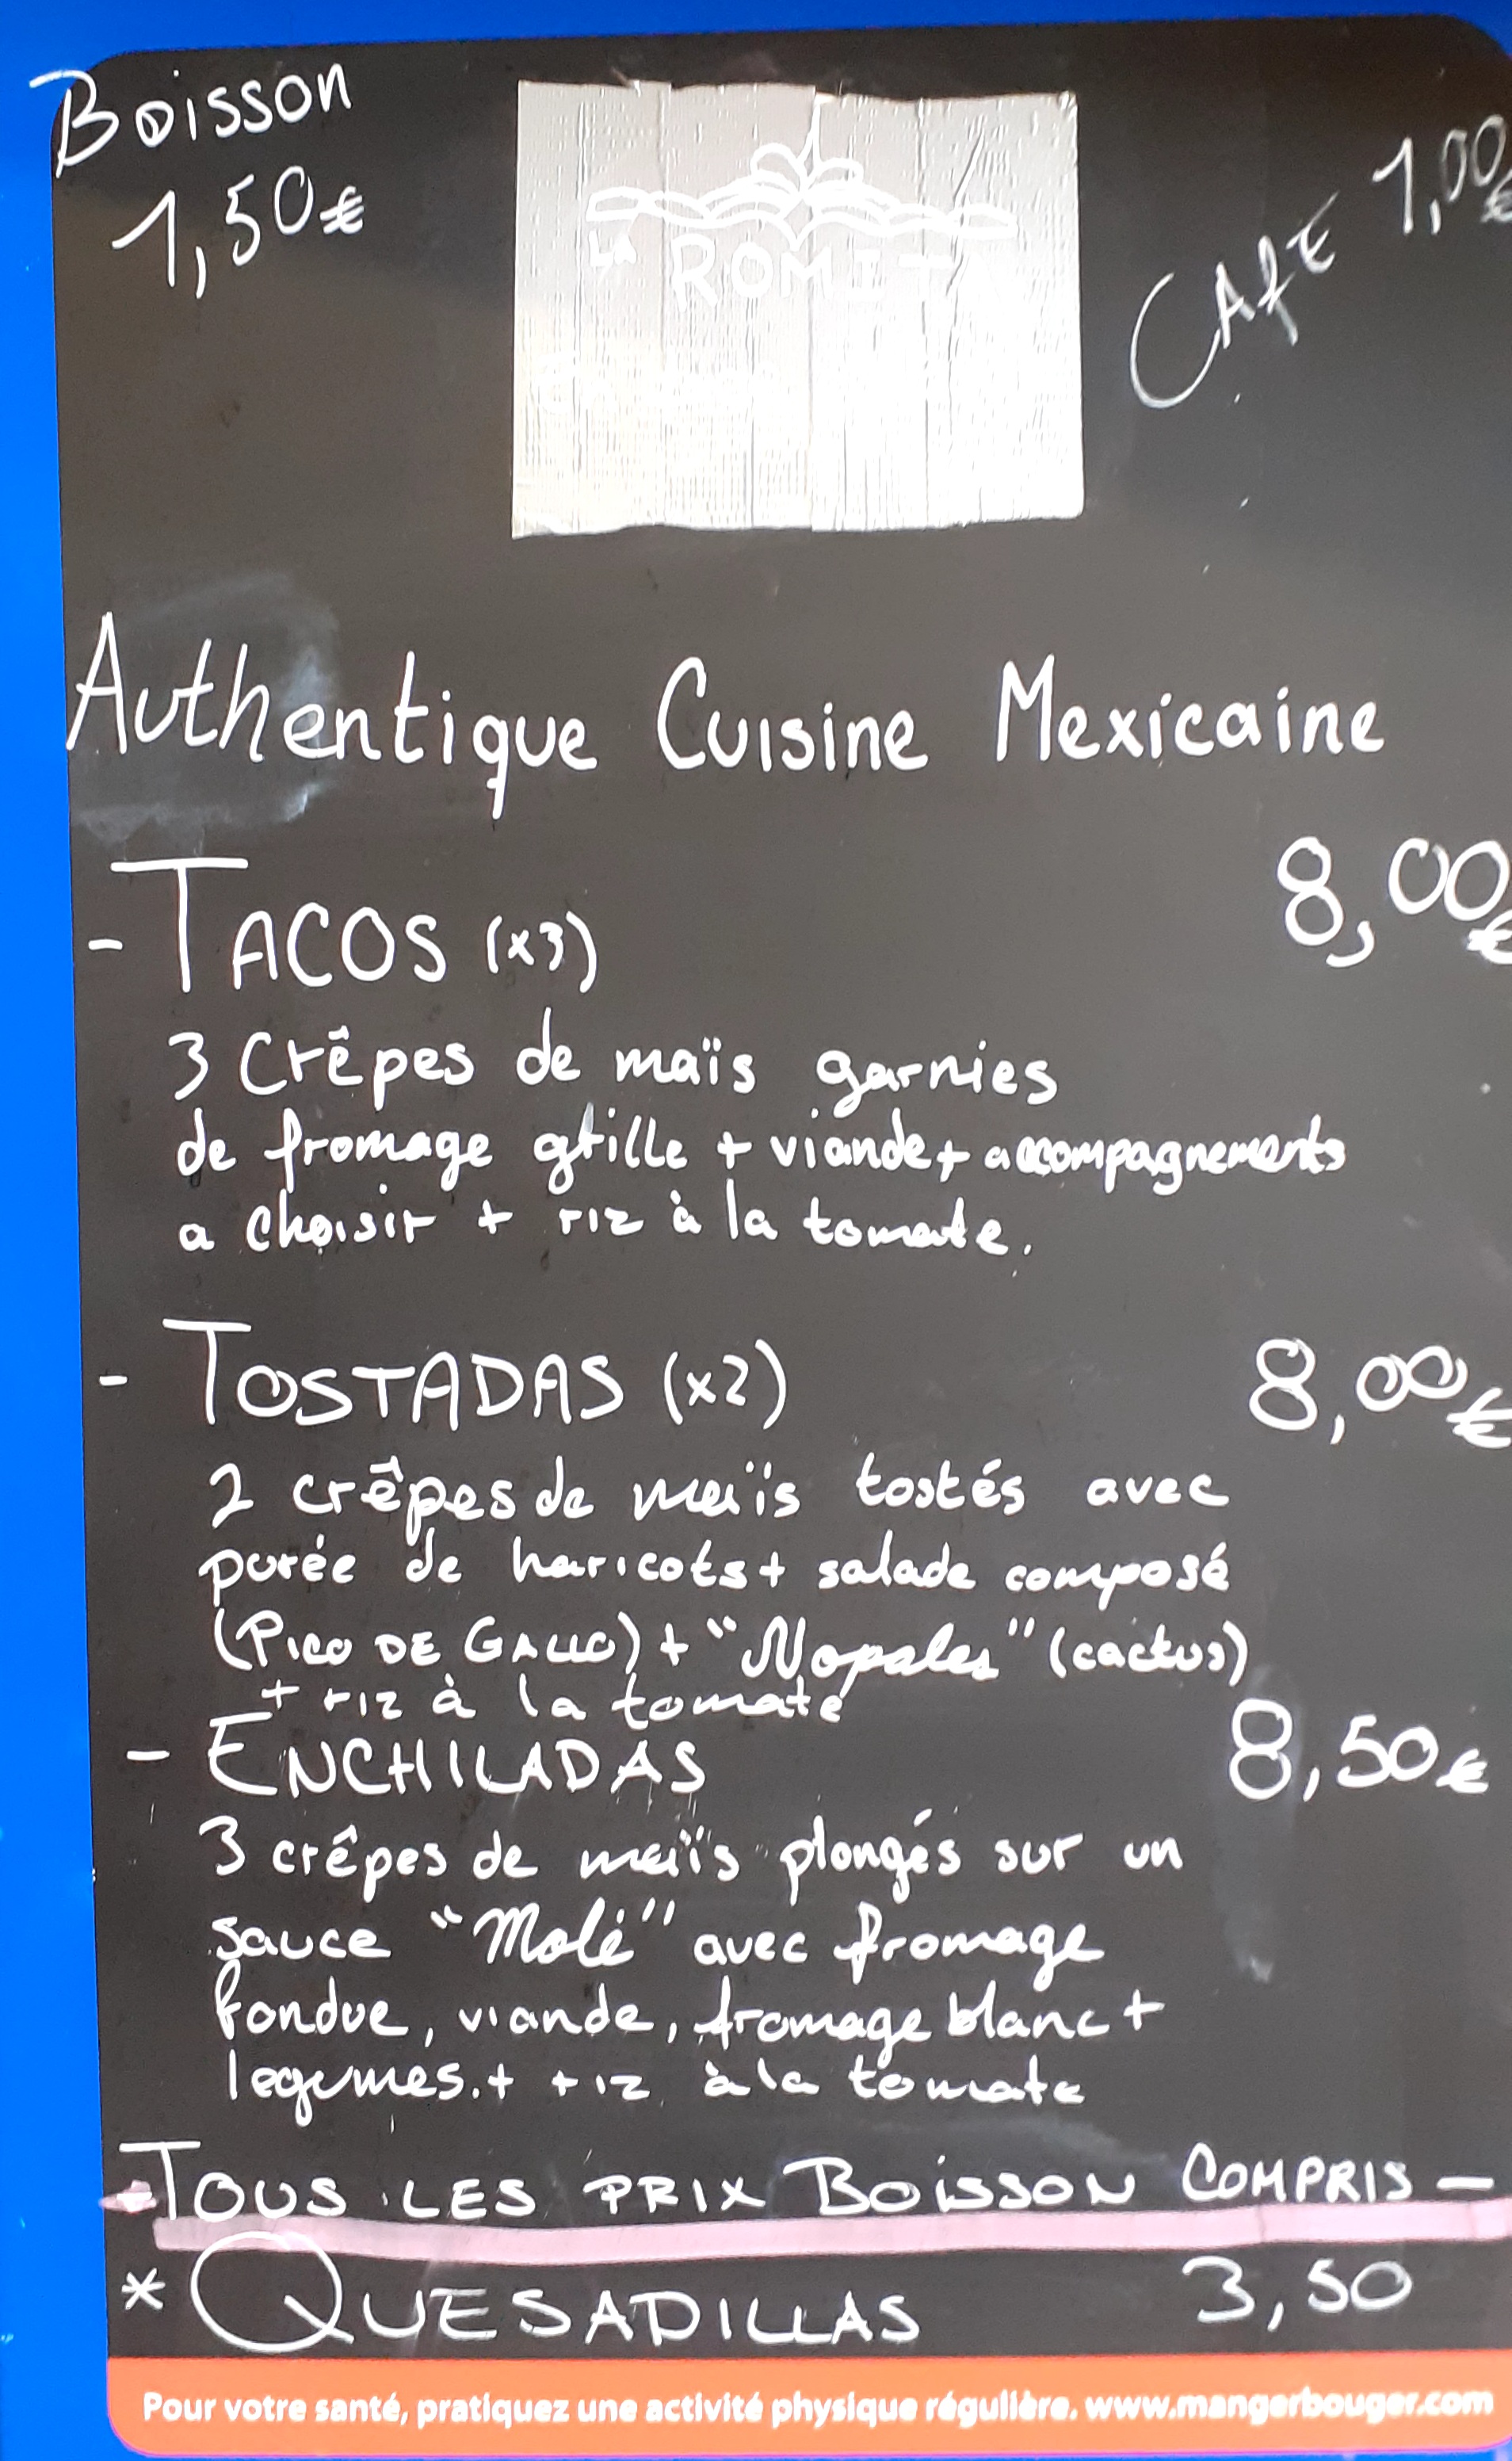 Boisson
1,50€
LA ROMITA
CAFE 1,00€
Authentique Cuisine Mexicaine
- TACOS (x3) 8,00€
3 Crêpes de maïs garnies
de fromage grille + viande + accompagnements
a choisir + riz à la tomate.
- TOSTADAS (x2) 8,00€
2 crêpes de maïs tostés avec
purée de haricots + salade composé
(PICO DE GALLO) + "Nopales" (cactus)
+ riz à la tomate
- ENCHILADAS 8,50€
3 crêpes de maïs plongés sur un
sauce "Molé" avec fromage
fondue, viande, fromage blanc +
legumes. + riz à la tomate
- TOUS LES PRIX BOISSON COMPRIS -
* QUESADILLAS 3,50
Pour votre santé, pratiquez une activité physique régulière. www.mangerbouger.com